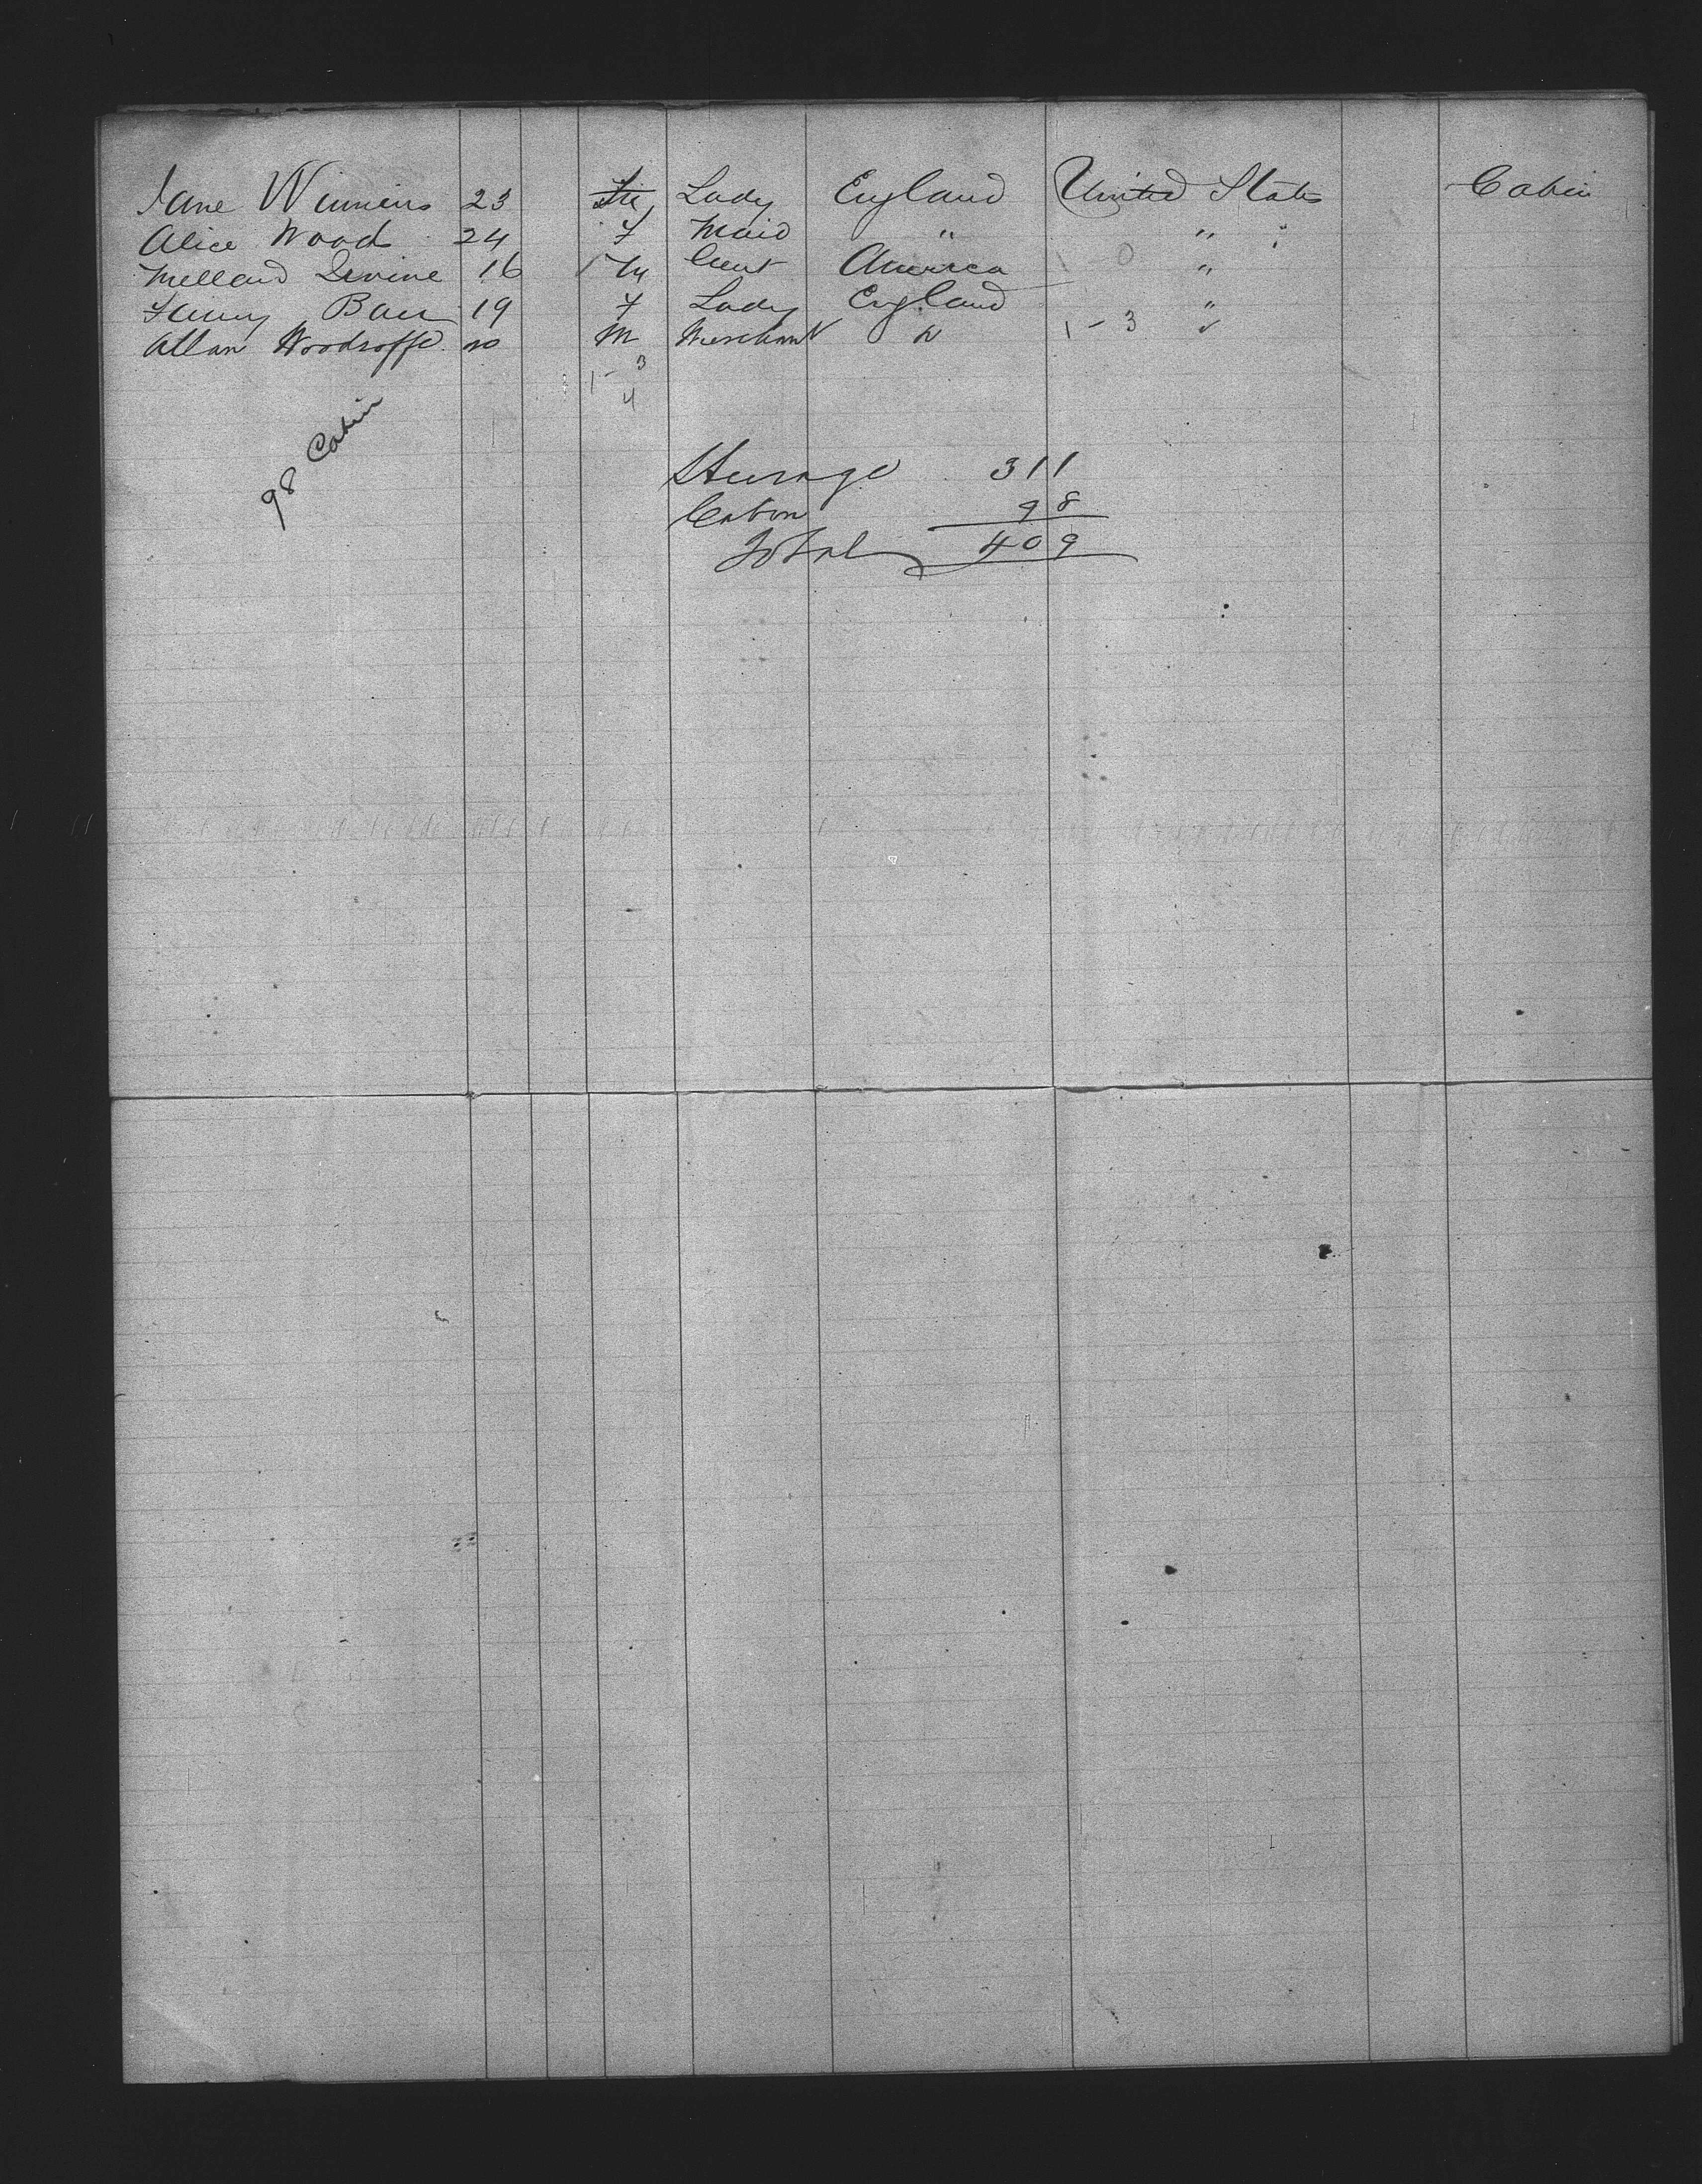 Jane Winnens 23 Lady England United States Cabin
Alice Wood 24 F Maid " "
Melland Irvine 16 M Gent America 1 - 0 "
Fanny Barr 19 F Lady England "
Allan Woodroffe M Merchant " 1 - 3 "
1 - 3
4
98 Cabin
Steerage 311
Cabin 98
Total 409